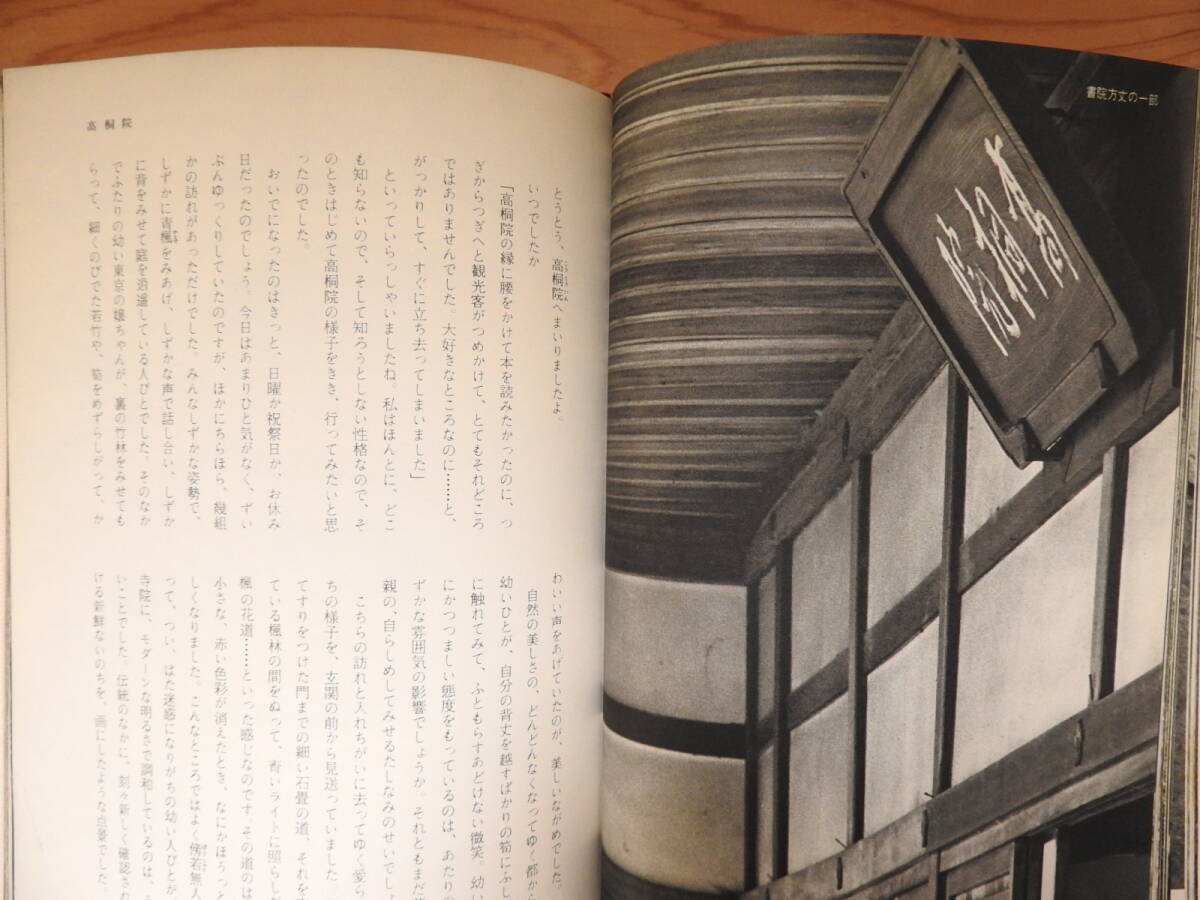 書院方丈の一部
高桐院
高桐院
とうとう、高桐院へまいりましたよ。
いつでしたか
「高桐院の縁に腰をかけて本を読みたかったのに、つ
ぎからつぎへと観光客がつめかけて、とてもそれどころ
ではありませんでした。大好きなところなのに……と、
がっかりして、すぐに立ち去ってしまいました」
といっていらっしゃいましたね。私はほんとに、どこ
も知らないので、そして知ろうとしない性格なので、そ
のときはじめて高桐院の様子をきき、行ってみたいと思
ったのでした。
おいでになったのはきっと、日曜か祝祭日か、お休み
日だったのでしょう。今日はあまりひと気がなく、ずい
ぶんゆっくりしていたのですが、ほかにちらほら、幾組
かの訪れがあっただけでした。みんなしずかな姿勢で、
しずかに青楓をみあげ、しずかな声で話し合い、しずか
に背をみせて庭を逍遥している人びとでした。そのなか
でふたりの幼い東京の嬢ちゃんが、裏の竹林をみせても
らって、細くのびでた若竹や、筍をめずらしがって、か
わいい声をあげていたのが、美しいながめでした。
自然の美しさの、どんどんなくなってゆく都から
幼いひとが、自分の背丈を越すばかりの筍にふし
に触れてみて、ふともらすあどけない微笑。幼い
にかつつましい態度をもっているのは、あたりの
ずかな雰囲気の影響でしょうか。それともまだ
親の、自らしめしてみせるたしなみのせいでしょ
こちらの訪れと入れちがいに去ってゆく愛ら
ちの様子を、玄関の前から見送っていました
てすりをつけた門までの細い石畳の道、それを
ている楓林の間をぬって、青いライトに照らし
楓の花道……といった感じなのです。その道のは
小さな、赤い色彩が消えたとき、なにかほうっと
しくなりました。こんなところではよく傍若無人
って、つい、はた迷惑になりがちの幼い人びとが
寺院に、モダーンな明るさで調和しているのは、
いことでした。伝統のなかに、刻々新しく確認され
ける新鮮ないのちを、画にしたような点景でした。